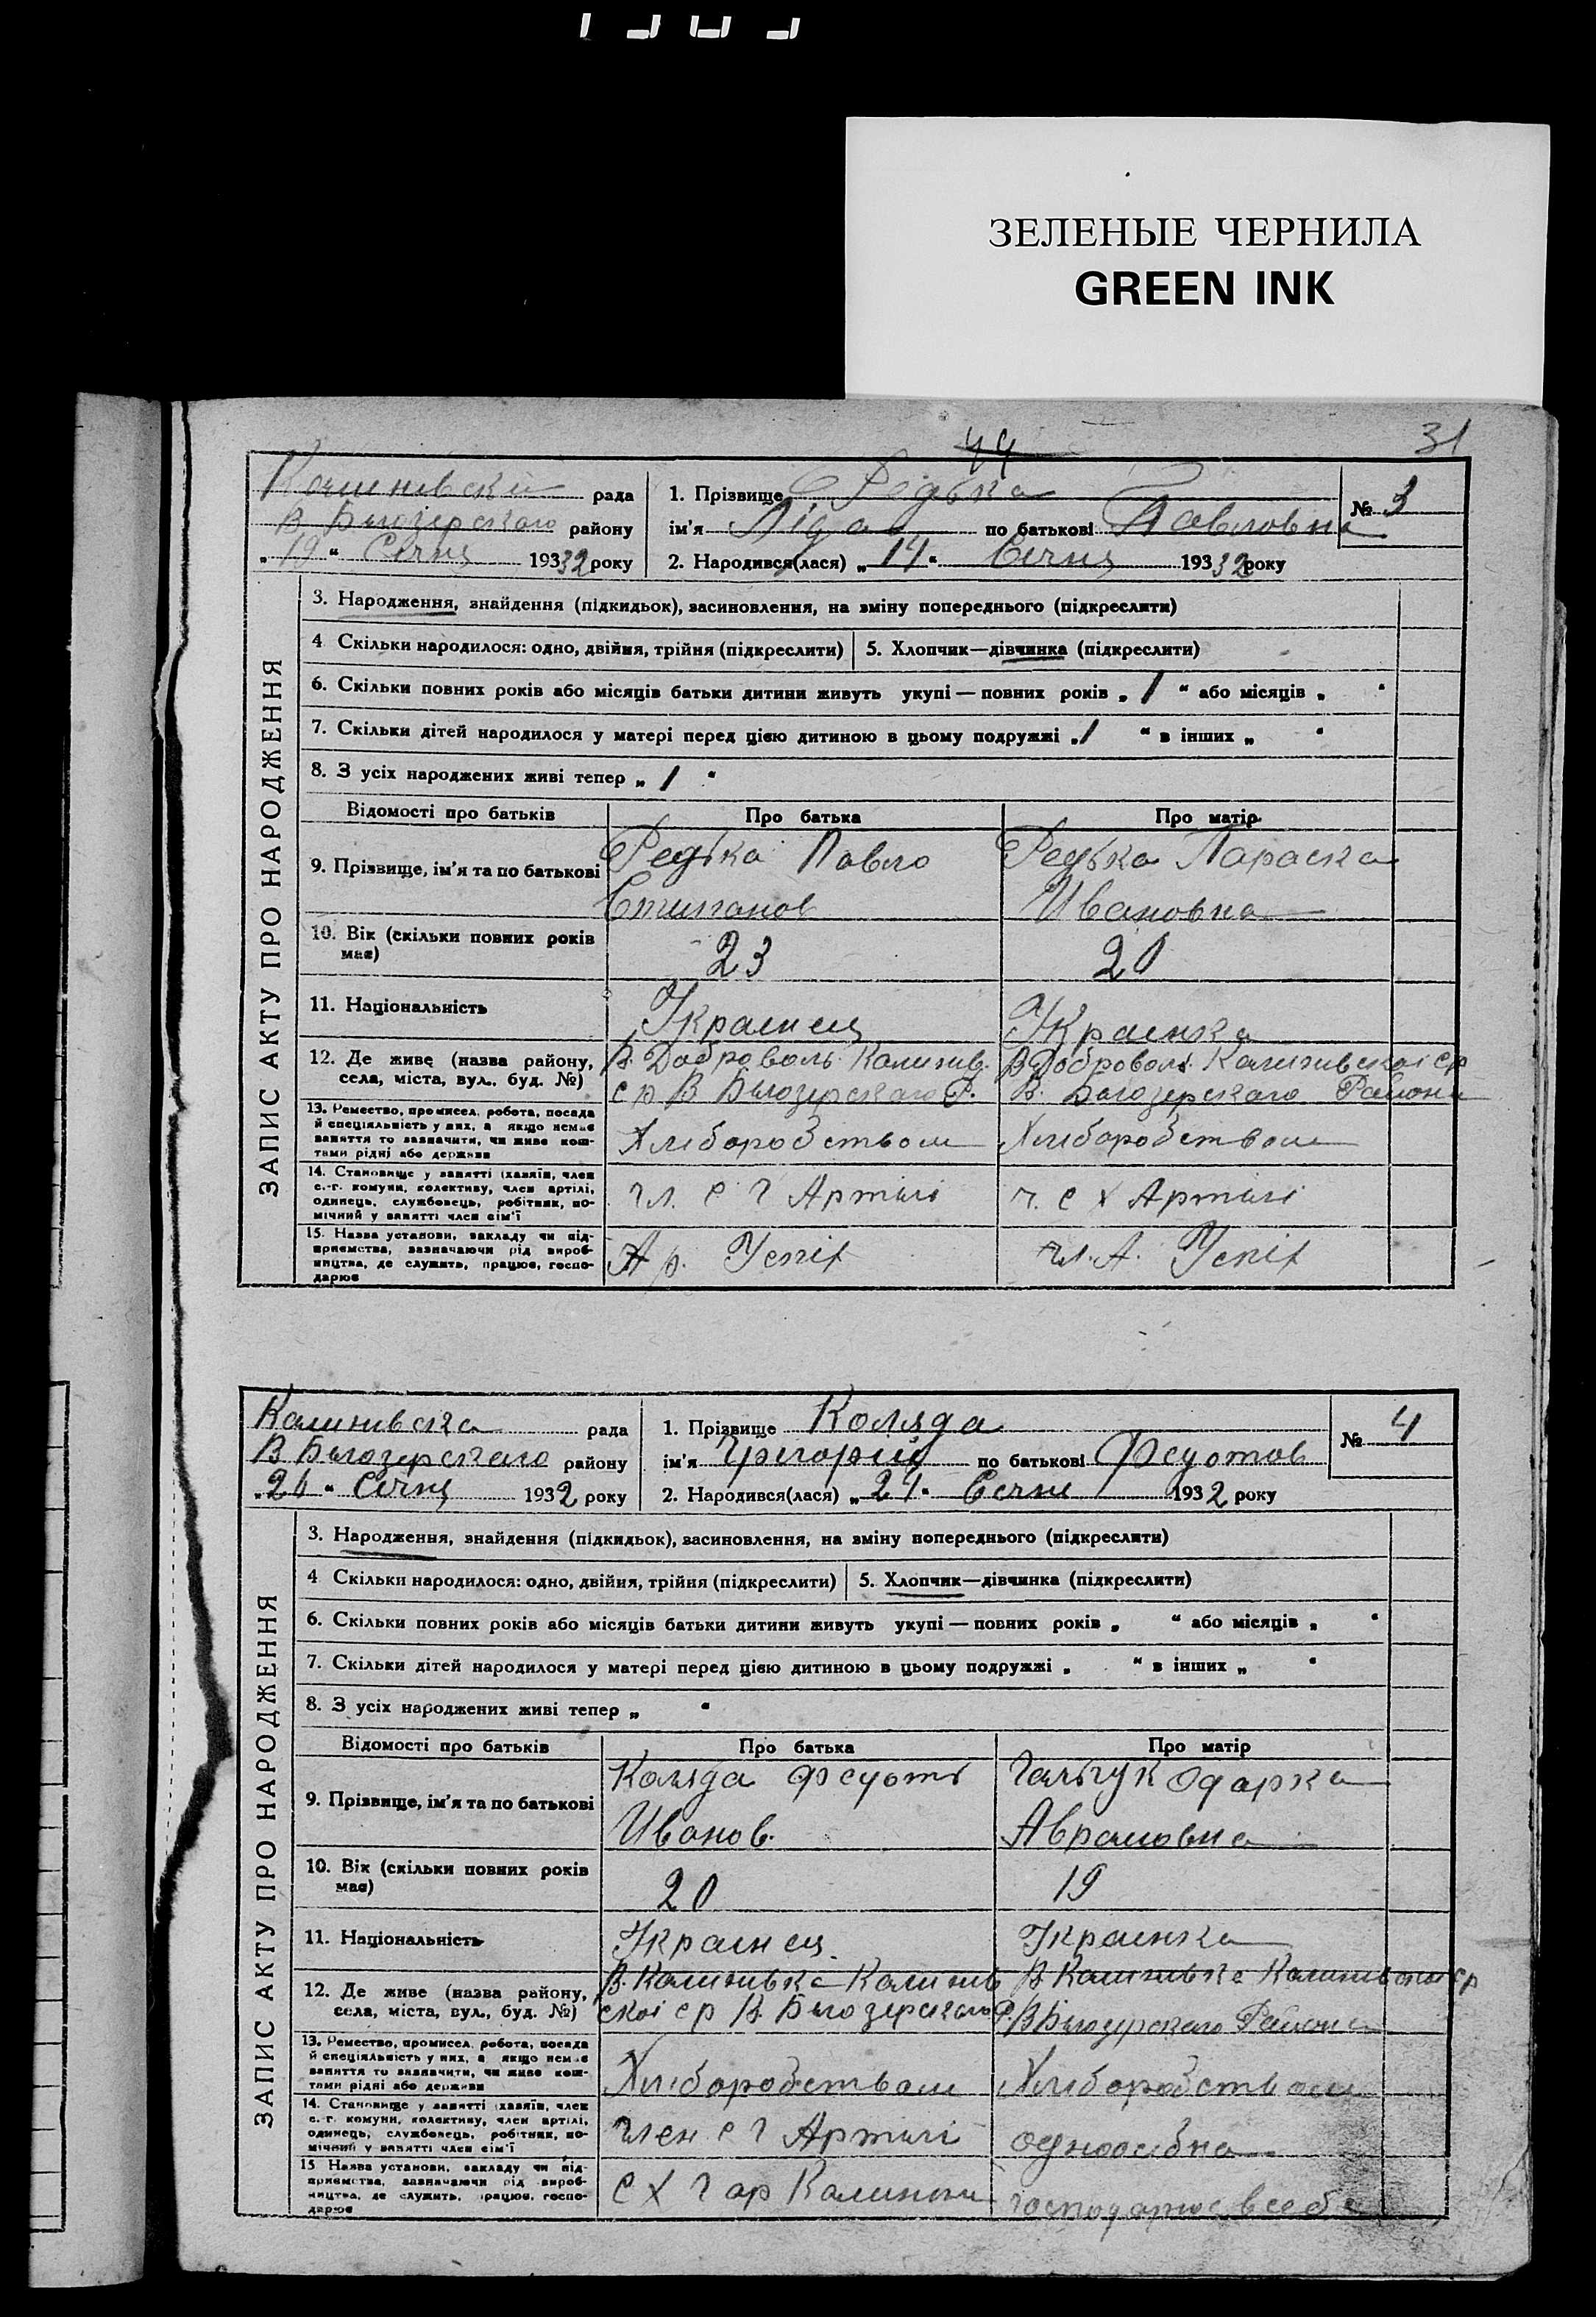 ЗЕЛЕНЫЕ ЧЕРНИЛА
GREEN INK
44
31
рада
В Білозерского району
„19“ Січня 1932 року
1. Прізвище Редька
ім'я Ліда по батькові Павловна
2. Народився(лася) „14“ Січня 1932 року
№ 3
ЗАПИС АКТУ ПРО НАРОДЖЕННЯ
3. Народження, знайдення (підкидьок), засиновлення, на зміну попереднього (підкреслити)
4 Скільки народилося: одно, двійня, трійня (підкреслити) 5. Хлопчик—дівчинка (підкреслити)
6. Скільки повних років або місяців батьки дитини живуть укупі — повних років „ 1 “ або місяців „ “
7. Скільки дітей народилося у матері перед цією дитиною в цьому подружжі „ 1 “ в інших „ “
8. З усіх народжених живі тепер „ 1 “
Відомості про батьків Про батька Про матір
9. Прізвище, ім'я та по батькові
Редька Павло
Степанов
Редька Параска
Ивановна
10. Вік (скільки повних років має)
23
20
11. Національність
Украинец
Украинка
12. Де живе (назва району, села, міста, вул., буд. №)
В. Доброволь. Калинів.
с р В Білозерского Р.
В Доброволь. Калинівскоі с р
В. Білозерского Района
13. Ремество, промисел, робота, посада
й спеціяльність у них, а якщо немає
заняття то зазначити, чи живе кош-
тами рідні або держави
Хліборобством
Хліборобством
14. Становище у занятті (хазяїн, член
с.-г. комуни, колективу, член артілі,
одинець, службовець, робітник, по-
мічний у занятті член сім'ї
чл. с г Артілі
ч. с х Артілі
15. Назва установи, закладу чи під-
приємства, зазначаючи рід вироб-
ництва, де служить, працює, госпо-
дарює
Ар. Успіх
чл. А. Успіх
Калинівска рада
В Білозерского району
„26“ Січня 1932 року
1. Прізвище Коляда
ім'я Григорий по батькові Федотов
2. Народився(лася) „24“ Січня 1932 року
№ 4
ЗАПИС АКТУ ПРО НАРОДЖЕННЯ
3. Народження, знайдення (підкидьок), засиновлення, на зміну попереднього (підкреслити)
4 Скільки народилося: одно, двійня, трійня (підкреслити) 5. Хлопчик—дівчинка (підкреслити)
6. Скільки повних років або місяців батьки дитини живуть укупі — повних років „ “ або місяців „ “
7. Скільки дітей народилося у матері перед цією дитиною в цьому подружжі „ “ в інших „ “
8. З усіх народжених живі тепер „ “
Відомості про батьків Про батька Про матір
9. Прізвище, ім'я та по батькові
Коляда Федоті
Иванов.
Гальчук Одарка
Аврамовна
10. Вік (скільки повних років має)
20
19
11. Національність
Украинец
Украинка
12. Де живе (назва району, села, міста, вул., буд. №)
В. Калинівка Калинів
скоі с р В. Білозерского Р.
В Калинівка Калинівскоі с р
В Білозерского Района
13. Ремество, промисел, робота, посада
й спеціяльність у них, а якщо немає
заняття то зазначити, чи живе кош-
тами рідні або держави
Хліборобством
Хліборобством
14. Становище у занятті (хазяїн, член
с.-г. комуни, колективу, член артілі,
одинець, службовець, робітник, по-
мічний у занятті член сім'ї
член с г Артілі
одноосібна
15 Назва установи, закладу чи під-
приємства, зазначаючи рід вироб-
ництва, де служить, працює, госпо-
дарює
с х г ар
господарює в себе